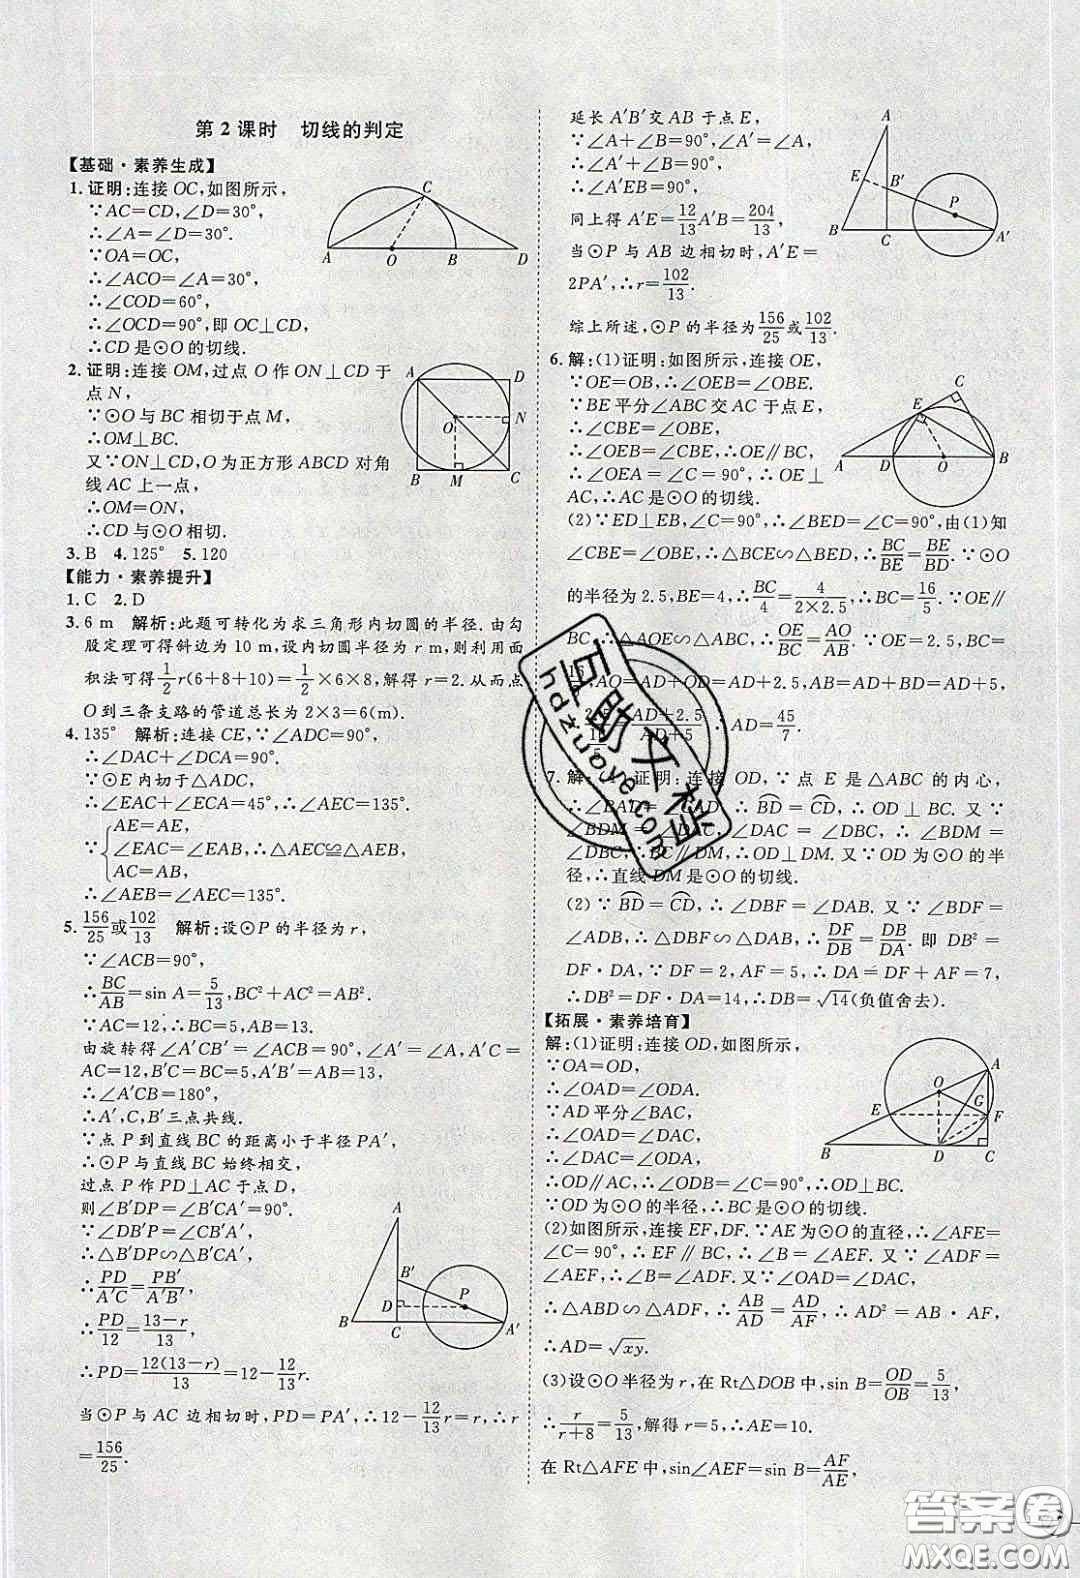 第2课时　切线的判定
【基础·素养生成】
1.证明:连接OC,如图所示,
∵AC=CD,∠D=30°,
∴∠A=∠D=30°.
∵OA=OC,
∴∠ACO=∠A=30°,
∴∠COD=60°,
∴∠OCD=90°,即OC⊥CD,
∴CD是⊙O的切线.
A O B D C
2.证明:连接OM,过点O作ON⊥CD于
点N,
∵⊙O与BC相切于点M,
∴OM⊥BC.
又∵ON⊥CD,O为正方形ABCD对角
线AC上一点,
∴OM=ON,
∴CD与⊙O相切.
A D N O B M C
3.B　4.125°　5.120
【能力·素养提升】
1.C　2.D
3.6 m　解析:此题可转化为求三角形内切圆的半径.由勾
股定理可得斜边为10 m,设内切圆半径为r m,则利用面
积法可得1/2r(6+8+10)=1/2×6×8,解得r=2.从而点
O到三条支路的管道总长为2×3=6(m).
4.135°　解析:连接CE,∵∠ADC=90°,
∴∠DAC+∠DCA=90°.
∵⊙E内切于△ADC,
∴∠EAC+∠ECA=45°,∴∠AEC=135°.
∵{AE=AE,
∠EAC=∠EAB,∴△AEC≌△AEB,
AC=AB,
∴∠AEB=∠AEC=135°.
5.156/25或102/13　解析:设⊙P的半径为r,
∵∠ACB=90°,
∴BC/AB=sin A=5/13,BC²+AC²=AB².
∵AC=12,∴BC=5,AB=13.
由旋转得∠A′CB′=∠ACB=90°,A′C=
AC=12,B′C=BC=5,A′B′=AB=13,
∴∠A′CB=180°,
∴A′,C,B三点共线.
∵点P到直线BC的距离小于半径PA′,
∴⊙P与直线BC始终相交,
过点P作PD⊥AC于点D,
则∠B′DP=∠B′CA′=90°.
∵∠DB′P=∠CB′A′,
∴△B′DP∽△B′CA′,
∴PD/A′C=PB′/A′B′,
∴PD/12=13-r/13,
∴PD=12(13-r)/13=12-12/13r.
A B′ D P B C A′
当⊙P与AC边相切时,PD=PA′,∴12-12/13r=r,∴r
=156/25.
延长A′B′交AB于点E,
∵∠A+∠B=90°,∠A′=∠A,
∴∠A′+∠B=90°,
∴∠A′EB=90°,
同上得A′E=12/13A′B=204/13.
当⊙P与AB边相切时,A′E=
2PA′,∴r=102/13.
综上所述,⊙P的半径为156/25或102/13.
A E B′ P B C A′
6.解:(1)证明:如图所示,连接OE,
∵OE=OB,∴∠OEB=∠OBE.
∵BE平分∠ABC交AC于点E,
∴∠CBE=∠OBE,
∴∠OEB=∠CBE,∴OE∥BC,
∴∠OEA=∠C=90°,∴OE⊥
AC,∴AC是⊙O的切线.
C E A D O B
(2)∵ED⊥EB,∠C=90°,∴∠BED=∠C,由(1)知
∠CBE=∠OBE,∴△BCE∽△BED,∴BC/BE=BE/BD.∵⊙O
的半径为2.5,BE=4,∴BC/4=4/2×2.5,∴BC=16/5.∵OE∥
BC,∴△AOE∽△ABC,∴OE/BC=AO/AB.∵OE=2.5,BC=
16/5,AO=AD+OD=AD+2.5,AB=AD+5,
∴2.5/(16/5)=AD+2.5/AD+5,∴AD=45/7.
7.解:(1)证明:连接OD,∵点E是△ABC的内心,
∴∠BAD=∠CAD,∴BD=CD,∴OD⊥BC.又∵
∠BDM=∠DAC,∠DAC=∠DBC,∴∠BDM=
∠DBC,∴BC∥DM,∴OD⊥DM.又∵OD为⊙O的半
径,∴直线DM是⊙O的切线.
(2)∵BD=CD,∴∠DBF=∠DAB.又∵∠BDF=
∠ADB,∴△DBF∽△DAB,∴DF/DB=DB/DA.即DB²=
DF·DA.∵DF=2,AF=5,∴DA=DF+AF=7,
∴DB²=DF·DA=14,∴DB=√14(负值舍去).
【拓展·素养培育】
解:(1)证明:连接OD,如图所示,
∵OA=OD,
∴∠OAD=∠ODA.
∵AD平分∠BAC,
∴∠OAD=∠DAC,
∴∠ODA=∠DAC,
∴OD∥AC,∴∠ODB=∠C=90°,∴OD⊥BC.
∵OD为⊙O的半径,∴BC是⊙O的切线.
A O G E F B D C
(2)如图所示,连接EF,DF.∵AE为⊙O的直径,∴∠AFE=
∠C=90°,∴EF∥BC,∴∠B=∠AEF.又∵∠ADF=
∠AEF,∴∠B=∠ADF.又∵∠OAD=∠DAC,
∴△ABD∽△ADF,∴AB/AD=AD/AF,∴AD²=AB·AF,
∴AD=√xy.
(3)设⊙O半径为r,在Rt△DOB中,sin B=OD/OB=5/13,
∴r/r+8=5/13,解得r=5,∴AE=10.
在Rt△AFE中,sin∠AEF=sin B=AF/AE,
互助文档
hdzuoye.com
答案圈
MXQE.COM